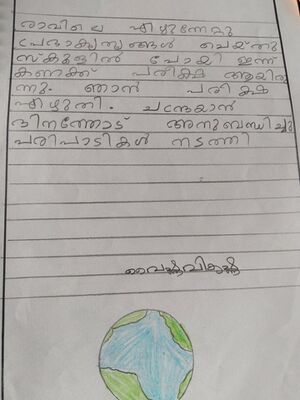 രാവിലെ എഴുന്നേറ്റു
പ്രഭാകൃത്യങ്ങൾ ചെയ്തു
സ്കൂളിൽ പോയി ഇന്ന്
കണക്ക് പരീക്ഷ ആയിരു
ന്നു. ഞാൻ പരീക്ഷ
എഴുതി. ചന്ദ്രയാൻ
ദിനത്തോട് അനുബന്ധിച്ചു
പരിപാടികൾ നടത്തി